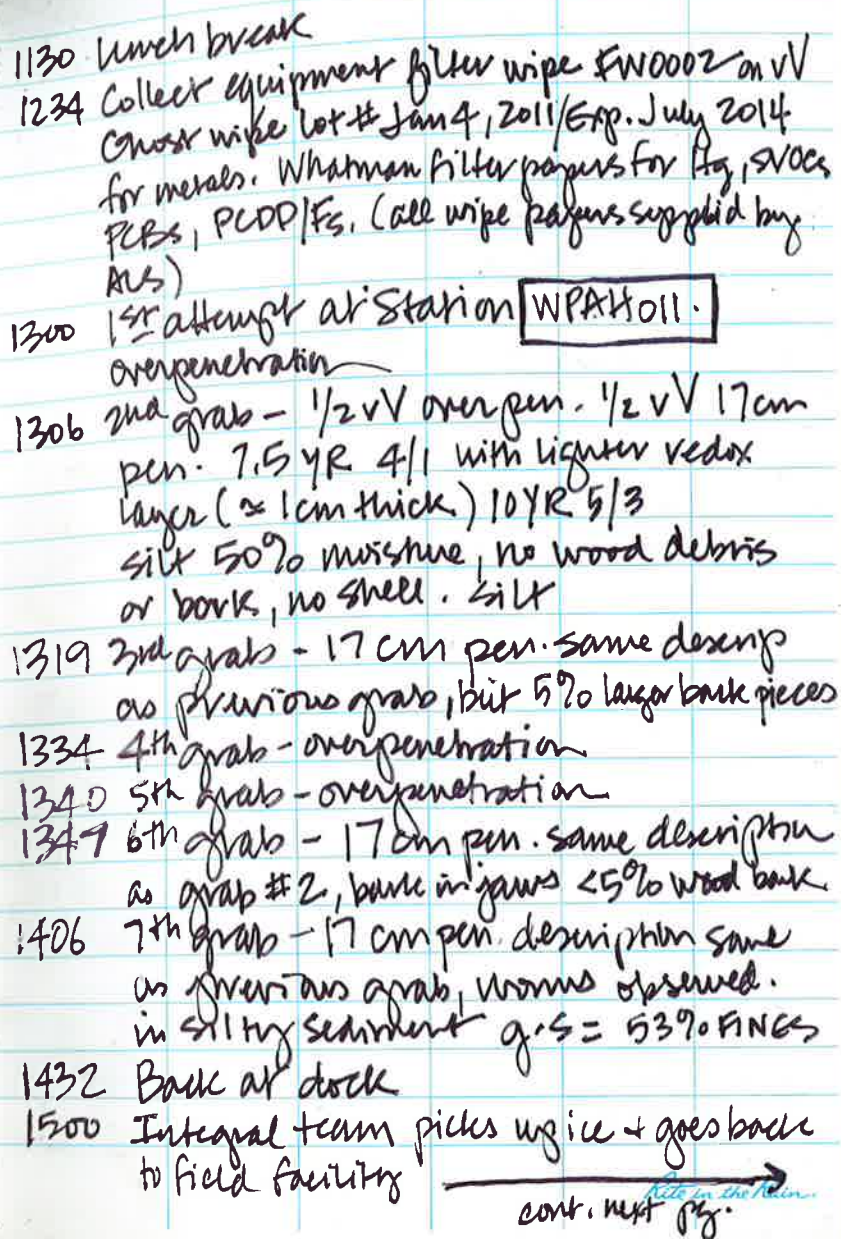 1130 Lunch break
1234 Collect equipment filter wipe FW0002 on vV
Ghost wipe lot # Jan 4, 2011/Exp. July 2014
for metals. Whatman filter papers for Hg, SVOCs
PCBs, PCDD/Fs. (all wipe papers supplied by
ALS)
1300 1st attempt at Station WPAH011.
overpenetration
1306 2nd grab - 1/2 vV over pen. 1/2 vV 17cm
pen. 7.5 YR 4/1 with lighter redox
layer (≈ 1cm thick) 10YR 5/3
silt 50% moisture, no wood debris
or bark, no shell. silt
1319 3rd grab - 17 cm pen. same descrip
as previous grab, but 5% larger bark pieces
1334 4th grab - overpenetration
1340 5th grab - overpenetration
1347 6th grab - 17 cm pen. same description
as grab #2, bark in jaws <5% wood bark.
1406 7th grab - 17 cm pen. description same
as previous grab, worms observed.
in silty sediment g.s = 53% FINES
1432 Back at dock
1500 Integral team picks up ice + goes back
to field facility
Rite in the Rain
cont. next pg.